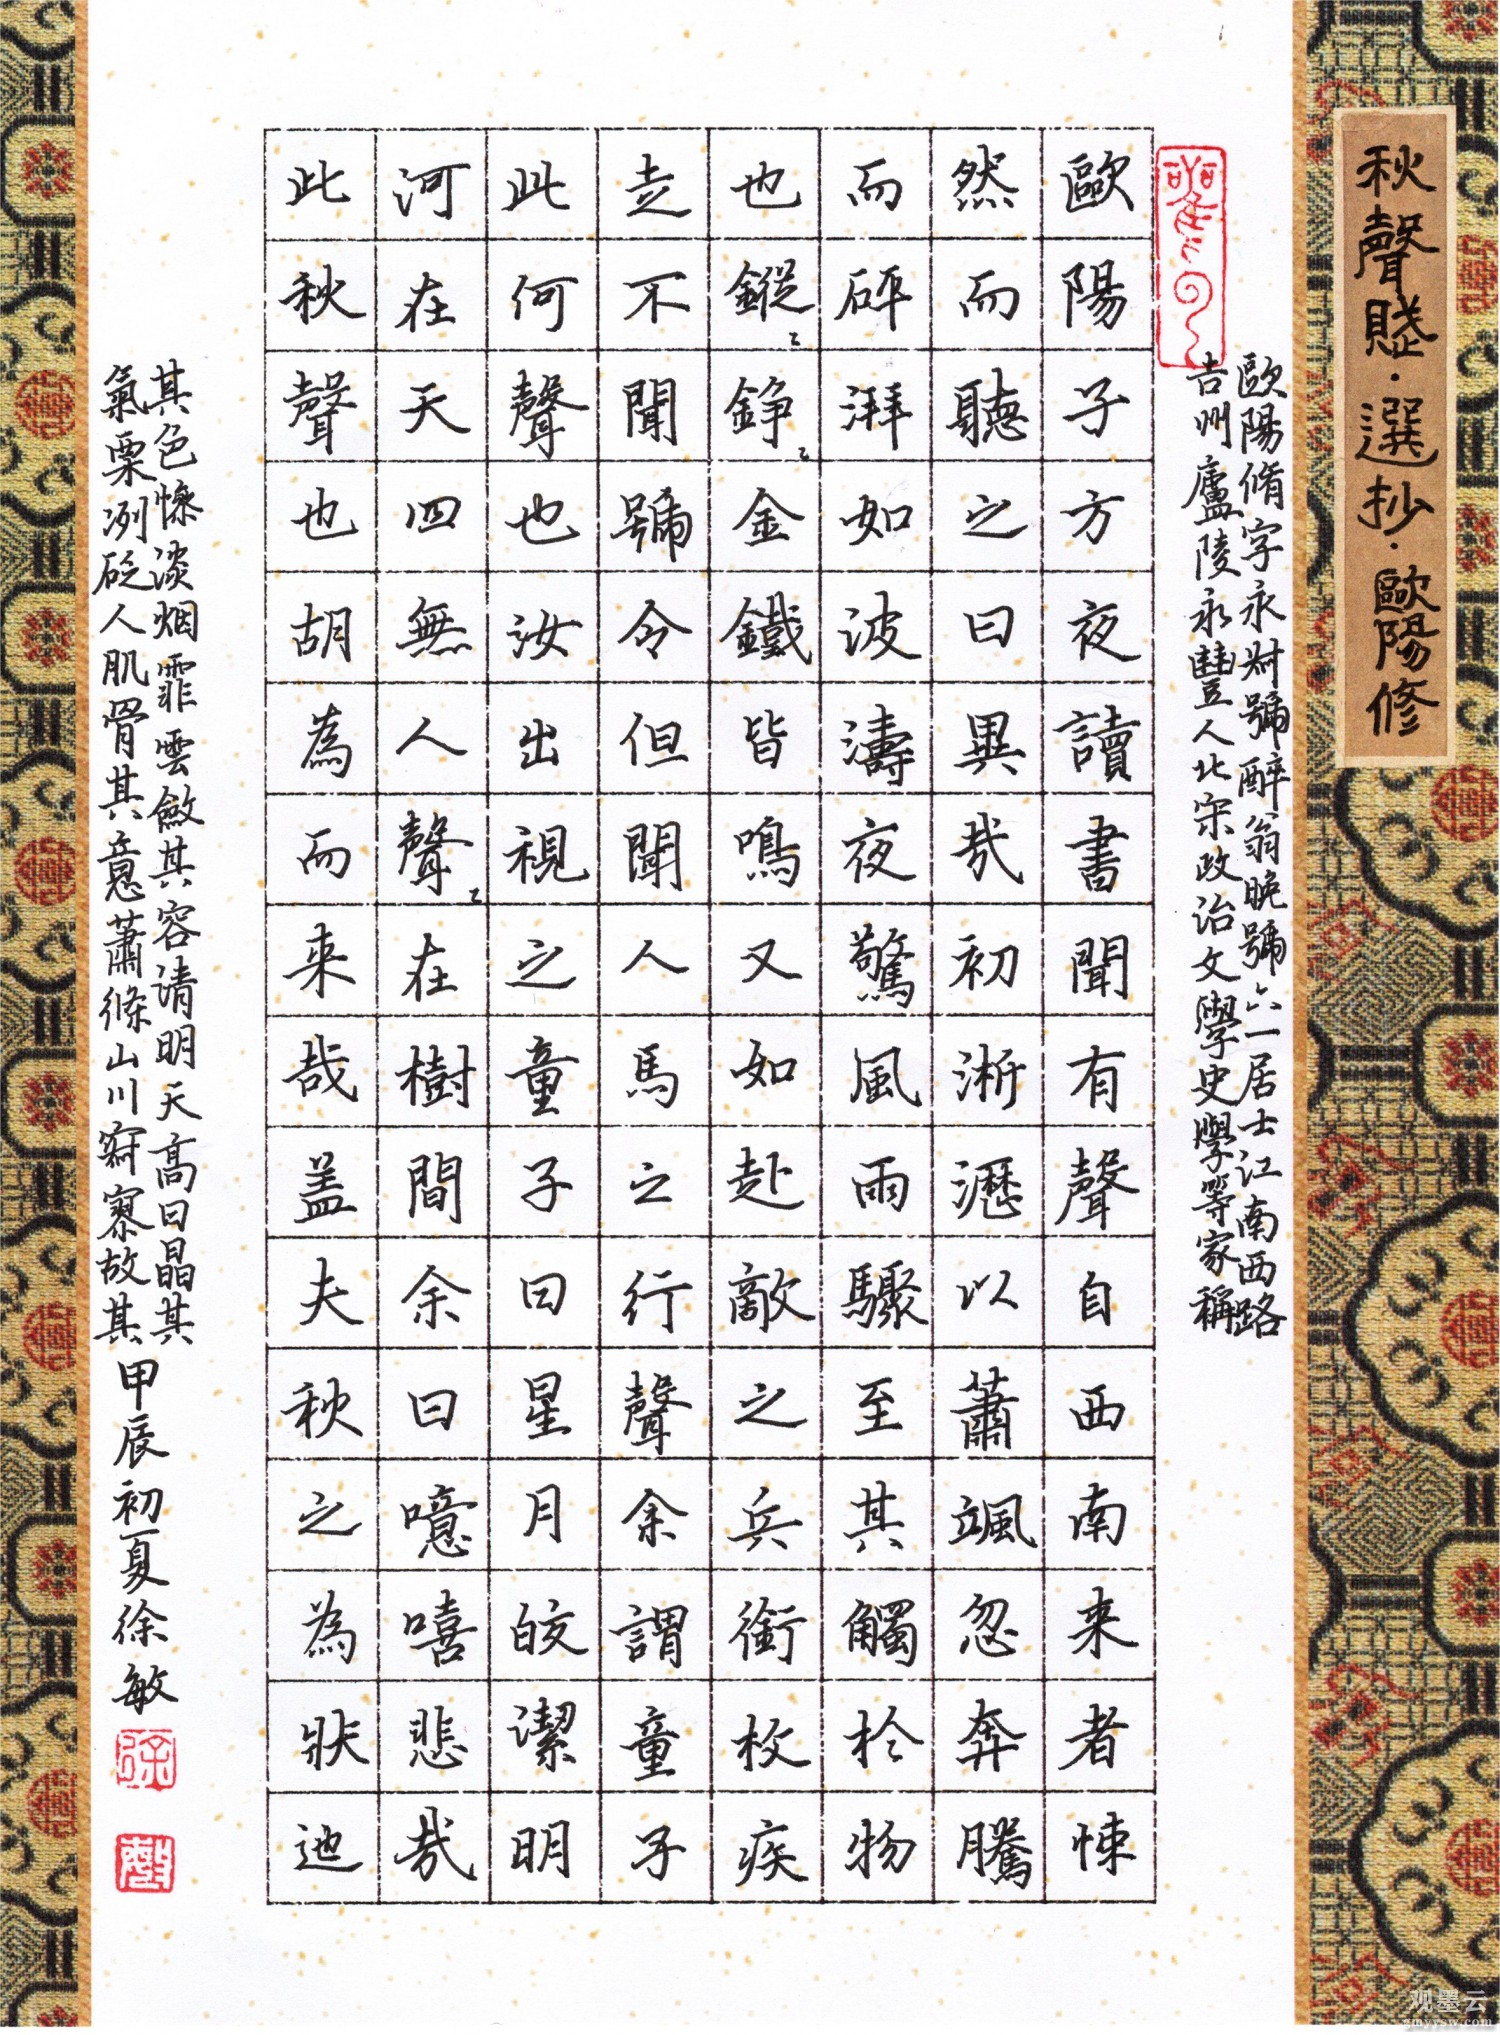 秋聲賦·選抄·歐陽修
歐陽脩字永叔號醉翁晚號六一居士江南西路
吉州廬陵永豐人北宋政治文學史學等家稱
歐陽子方夜讀書聞有聲自西南来者悚
然而聽之曰異哉初淅瀝以蕭颯忽奔騰
而砰湃如波濤夜驚風雨驟至其觸於物
也鏦〻錚〻金鐵皆鳴又如赴敵之兵銜枚疾
走不聞號令但聞人馬之行聲余謂童子
此何聲也汝出視之童子曰星月皎潔明
河在天四無人聲〻在樹間余曰噫嘻悲哉
此秋聲也胡為而来哉盖夫秋之為狀迆
其色慘淡烟霏雲斂其容清明天高日晶其
氣栗冽砭人肌骨其意蕭條山川寂寥故其
甲辰初夏徐敏
徐
敏
观墨云